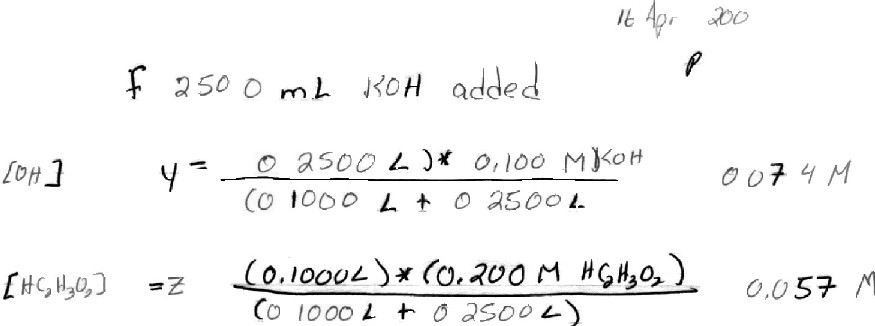 16 Apr 200
P
f 250 0 mL KOH added
[OH] y = 0 2500 L )* 0,100 M)KOH 0 07 4 M
(0 1000 L + 0 2500L
[HC₂H₃O₂] =z (0.1000L)*(0.200 M HC₂H₃O₂) 0.057 M
(0 1000 L + 0 2500L)